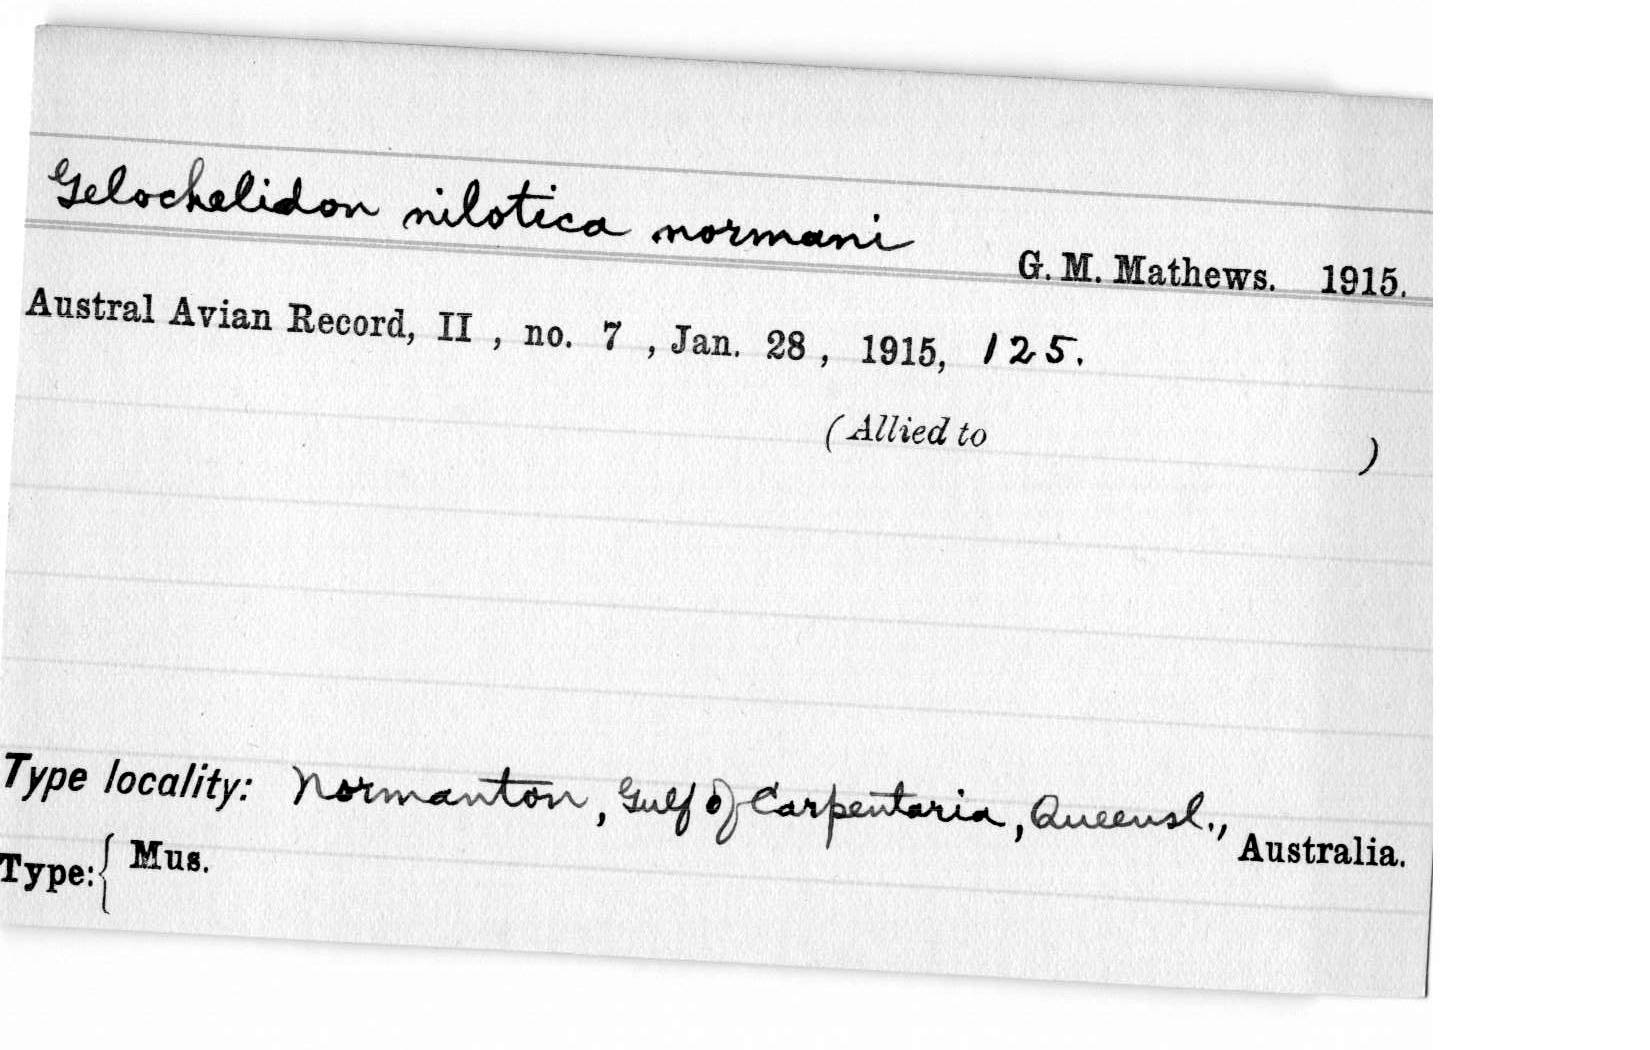 Gelochelidon nilotica normani G. M. Mathews. 1915.
Austral Avian Record, II , no. 7 , Jan. 28 , 1915, 125.
(Allied to )
Type locality: Normanton, Gulf of Carpentaria, Queensl., Australia.
Type:{ Mus.